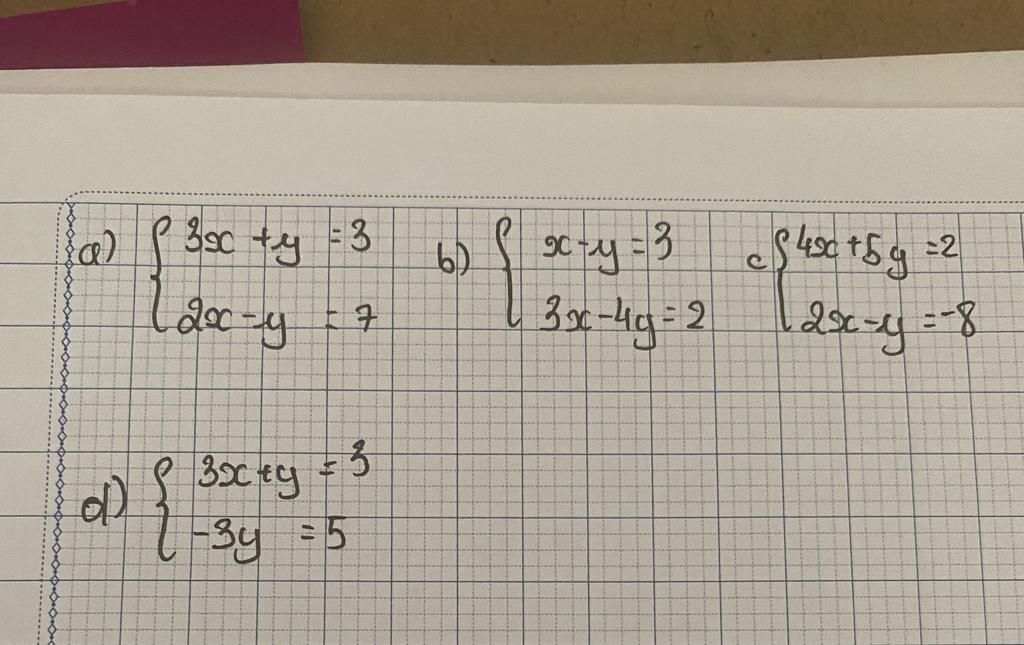 a) { 3x + y = 3
2x - y = 7
b) { x - y = 3
3x - 4y = 2
c { 4x + 5y = 2
2x - y = -8
d) { 3x + y = 3
-3y = 5